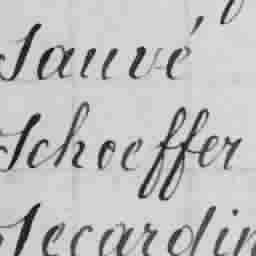 Sauvé
Schoeffer
Secardin